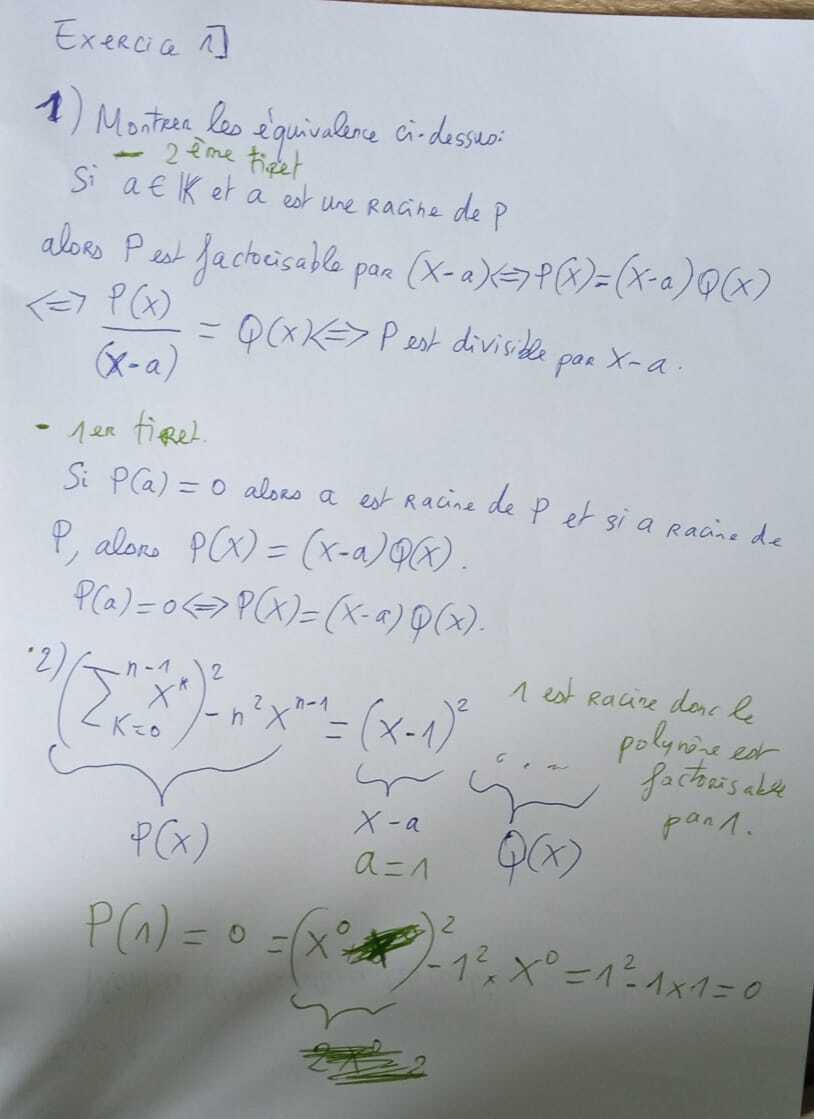 Exercice 1]
1) Montrer les équivalence ci-dessus:
- 2ème tiret
Si a ∈ K et a est une racine de P
alors P est factorisable par (X-a) <=> P(X) = (X-a) Q(X)
<=> P(X)/(X-a) = Q(X) <=> P est divisible par X-a.
- 1er tiret.
Si P(a) = 0 alors a est racine de P et si a racine de
P, alors P(X) = (X-a)Q(X).
P(a)=0 <=> P(X) = (X-a) Q(X).
2) (∑_{K=0}^{n-1} X^k)^2 - n^2 X^{n-1} = (X-1)^2 ....
1 est racine donc le
polynôme est
factorisable
par 1.
P(X) X-a Q(X)
a=1
P(1) = 0 = (X^0)^2 - 1^2 × X^0 = 1^2 - 1×1 = 0